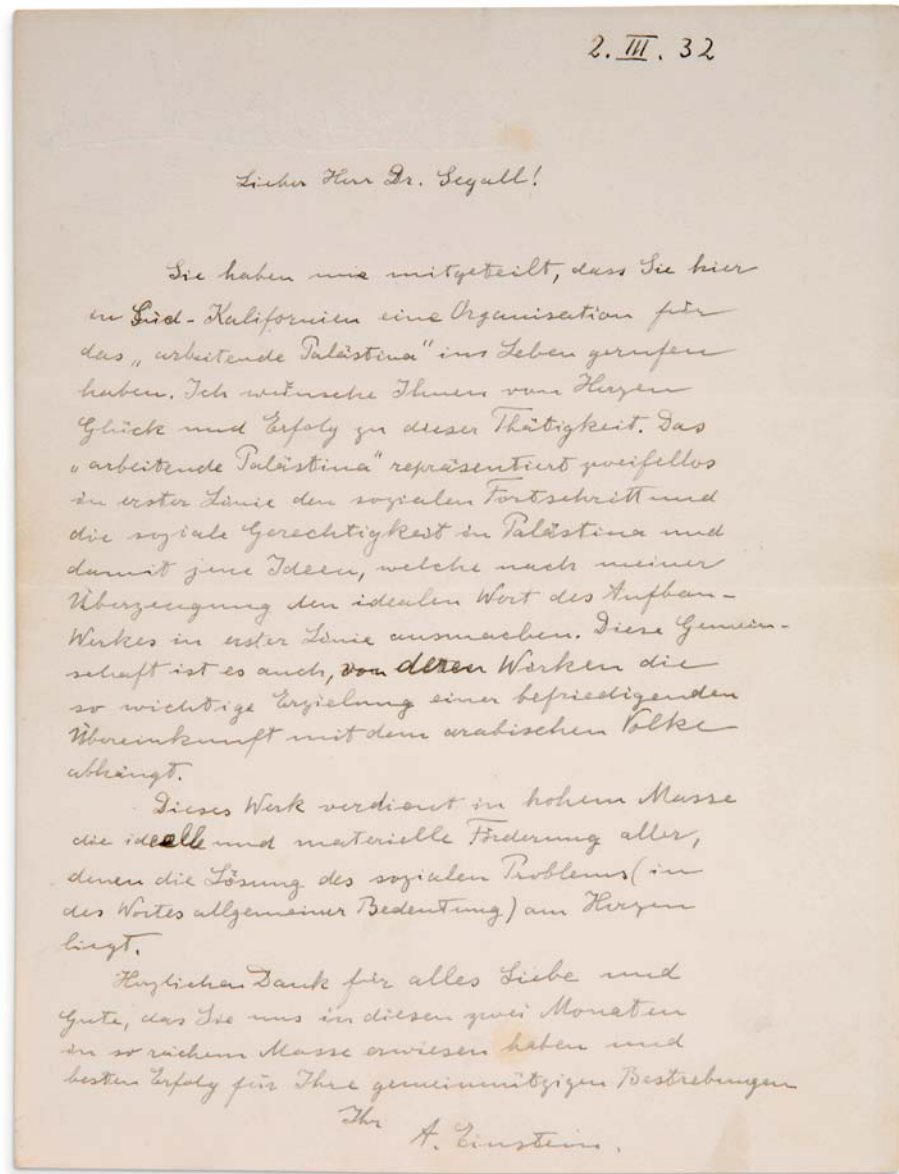 2. III. 32
Lieber Herr Dr. Segall!
Sie haben mir mitgeteilt, dass Sie hier
in Süd-Kalifornien eine Organisation für
das „arbeitende Palästina" ins Leben gerufen
haben. Ich wünsche Ihnen von Herzen
Glück und Erfolg zu dieser Thätigkeit. Das
„arbeitende Palästina" repräsentiert zweifellos
in erster Linie den sozialen Fortschritt und
die soziale Gerechtigkeit in Palästina und
damit jene Ideen, welche nach meiner
Überzeugung den idealen Wert des Aufbau-
Werkes in erster Linie ausmachen. Diese Gemein-
schaft ist es auch, von deren Werken die
so wichtige Erzielung einer befriedigenden
Übereinkunft mit dem arabischen Volke
abhängt.
Dieses Werk verdient in hohem Masse
die ideelle und materielle Förderung aller,
denen die Lösung des sozialen Problems (in
des Wortes allgemeiner Bedeutung) am Herzen
liegt.
Herzlichen Dank für alles Liebe und
Gute, das Sie uns in diesen zwei Monaten
in so reichem Masse erwiesen haben und
besten Erfolg für Ihre gemeinnützigen Bestrebungen
Ihr
A. Einstein.